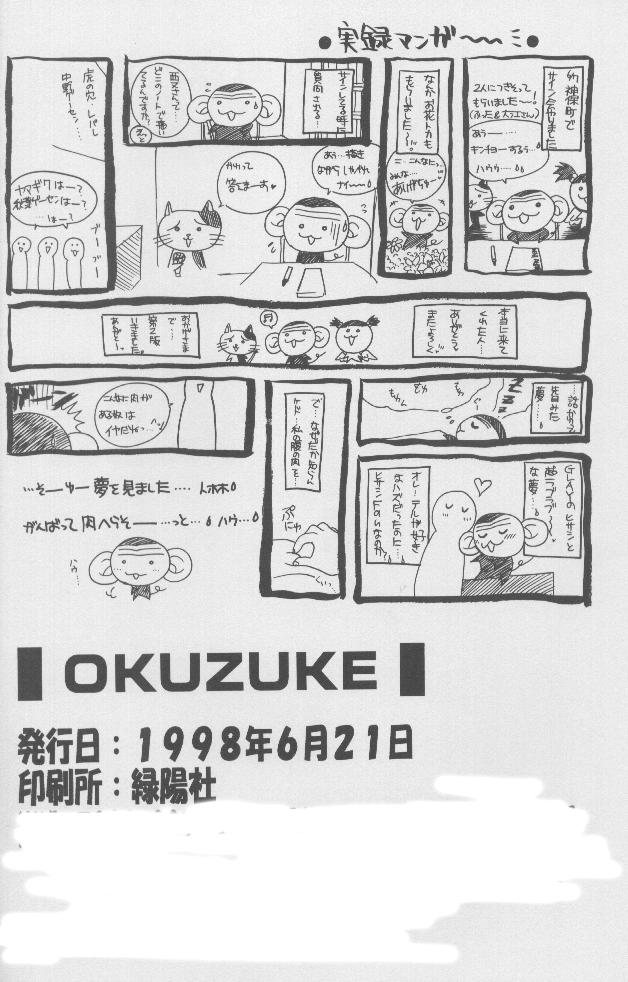 ●実録マンガ〜〜ミ●
神保町で
サイン会やりました
2人につきそって
もらいました〜!
あうー……
キンチョーするぅ…
ハウウ…
なんかお花トカも
もらいましたー〜。
ミ…こんなにっ…
みんな…
ありがちゅー♥
サインしてる時に
質問される…
西又さんって…
どこのノートで描い
てるんですか?
あぅ…描き
ながらしゃべれ
ナイ〜〜
かわって
答てまーす。
虎の穴…レバレ
中野ゲーセン…
ヤマギワはー?
秋葉ゲーセンはー?
…はー?
ブー
ブー
本当に来て
くれた人…
ありがとう
またよろしく
おかげさま
で…
第2版
いきました。
ありがとー
…話かわって
先日みた
夢…
zzz
もわ
もわん
GLAYのヒサシと
超ラブラブ〜
な夢…
オレ…テルが好き
なハズだったのに…
ヒサシでいいなのか?
で…なぜだか
ケド…私の腹の肉を…
ぷに
ゅ
ぐい…
こんなに肉が
ある奴は
イヤだなっ…
…そーゆー夢を見ました……
がんばって肉へらそーー…っと… ハウ…
ハウ…
OKUZUKE
発行日:1998年6月21日
印刷所:緑陽社